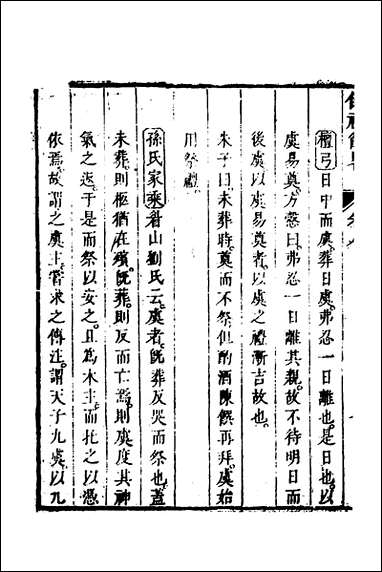 檀弓曰日中而虞葬日虞弗忍一日離也是日也以
虞易奠方慤曰弗忍一日離其親故不待明日而
後虞以虞易奠者以虞之禮漸吉故也
朱子曰未葬時奠而不祭但酌酒陳饌再拜虞始
用祭禮
孫氏家乘眉山劉氏云虞者旣葬反哭而祭也蓋
未葬則柩猶在殯旣葬則反而亡焉則虞度其神
氣之返于是而祭以安之且為木主而托之以憑
依焉故謂之虞主嘗求之傳注謂天子九虞以九